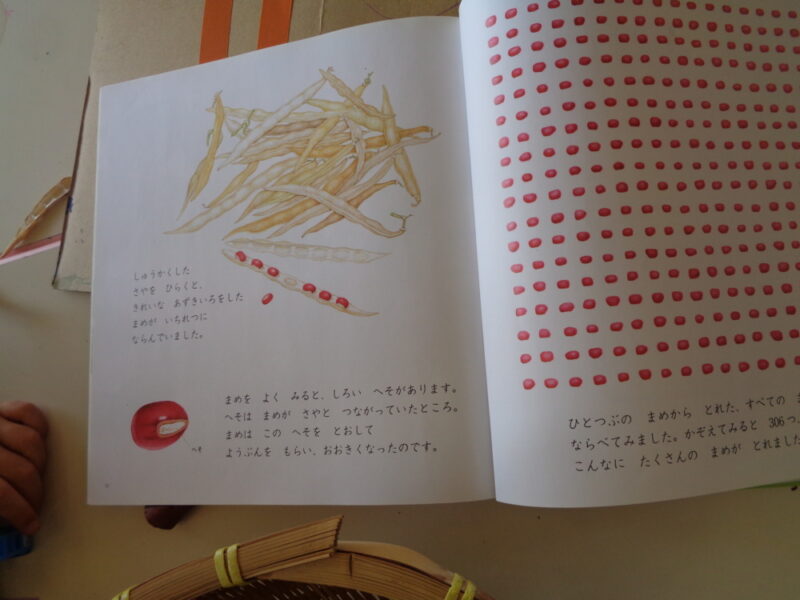 しゅうかくした
さやを ひらくと、
きれいな あずきいろをした
まめが いちれつに
ならんでいました。
まめを よく みると、しろい へそがあります。
へそは まめが さやと つながっていたところ。
まめは この へそを とおして
ようぶんを もらい、おおきくなったのです。
へそ
ひとつぶの まめから とれた、すべての
ならべてみました。かぞえてみると 306つ
こんなに たくさんの まめが とれました